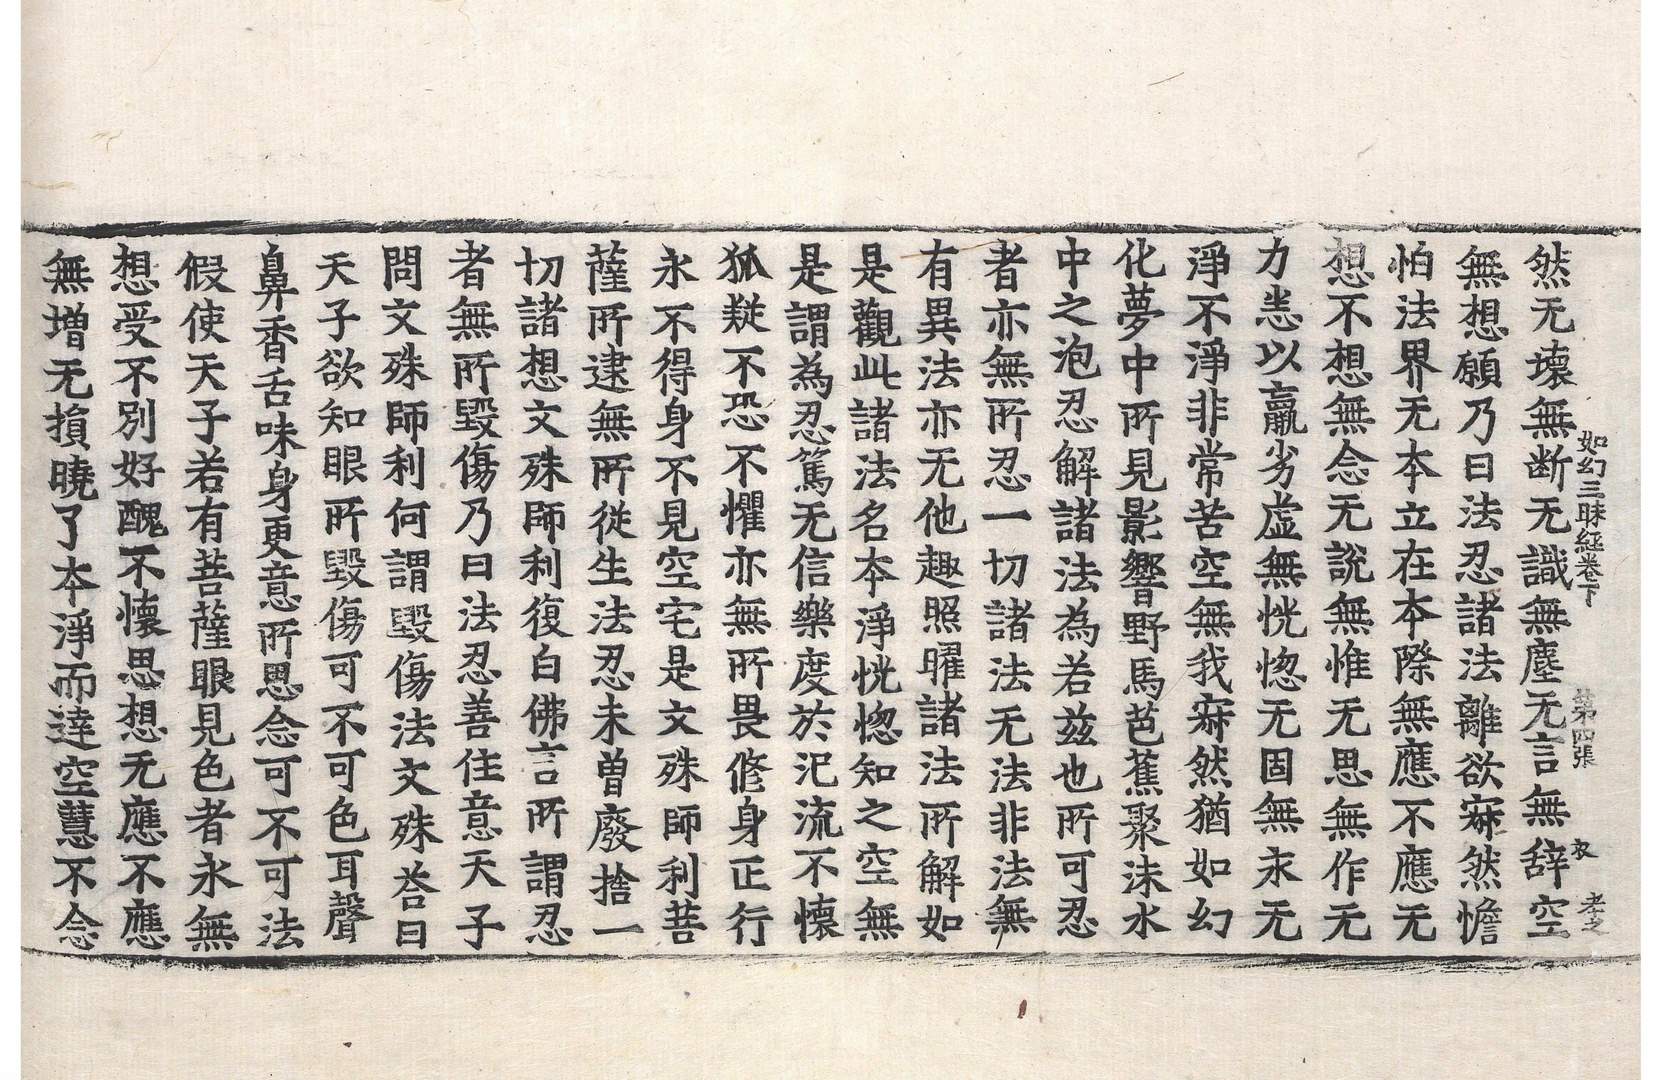 如幻三昧經卷下 第四張 衣 老之
然无壞無断无識無塵无言無辞空
無想願乃曰法忍諸法離欲寂然憺
怕法界无本立在本際無應不應无
想不想無念无說無惟无思無作无
力恙以羸劣虛無恍惚无固無求无
淨不淨非常苦空無我寂然猶如幻
化夢中所見影響野馬芭蕉聚沫水
中之泡忍解諸法為若茲也所可忍
者亦無所忍一切諸法无法非法無
有異法亦无他趣照曜諸法所解如
是觀此諸法名本淨恍惚知之空無
是謂為忍篤无信樂度於汜流不懷
狐疑不恐不懼亦無所畏修身正行
永不得身不見空宅是文殊師利菩
薩所逮無所從生法忍未曾廢捨一
切諸想文殊師利復白佛言所謂忍
者無所毀傷乃曰法忍善住意天子
問文殊師利何謂毀傷法文殊荅曰
天子欲知眼所毀傷可不可色耳聲
鼻香舌味身更意所思念可不可法
假使天子若有菩薩眼見色者永無
想受不別好醜不懷思想无應不應
無增无損曉了本淨而達空慧不念